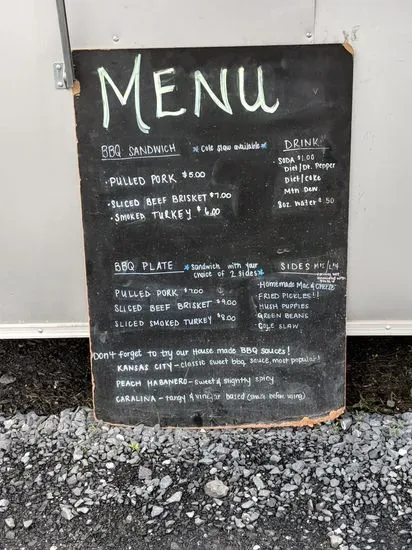 MENU
BBQ SANDWICH * Cole slaw available *
· PULLED PORK $5.00
· SLICED BEEF BRISKET $7.00
· SMOKED TURKEY $6.00
DRINK
· SODA $1.00
Diet/Dr. Pepper
Diet/Coke
Mtn Dew
8oz. water $.50
BBQ PLATE * Sandwich with your choice of 2 sides *
PULLED PORK $7.00
SLICED BEEF BRISKET $9.00
SLICED SMOKED TURKEY $8.00
SIDES
· Homemade Mac & Cheese
FRIED PICKLES!!
HUSH PUPPIES
GREEN BEANS
COLE SLAW
Don't forget to try our House made BBQ sauces!
KANSAS CITY - classic sweet bbq sauce, most popular!
PEACH HABANERO - sweet & slightly spicy
CARALINA - tangy & vinegar based (shake before using)